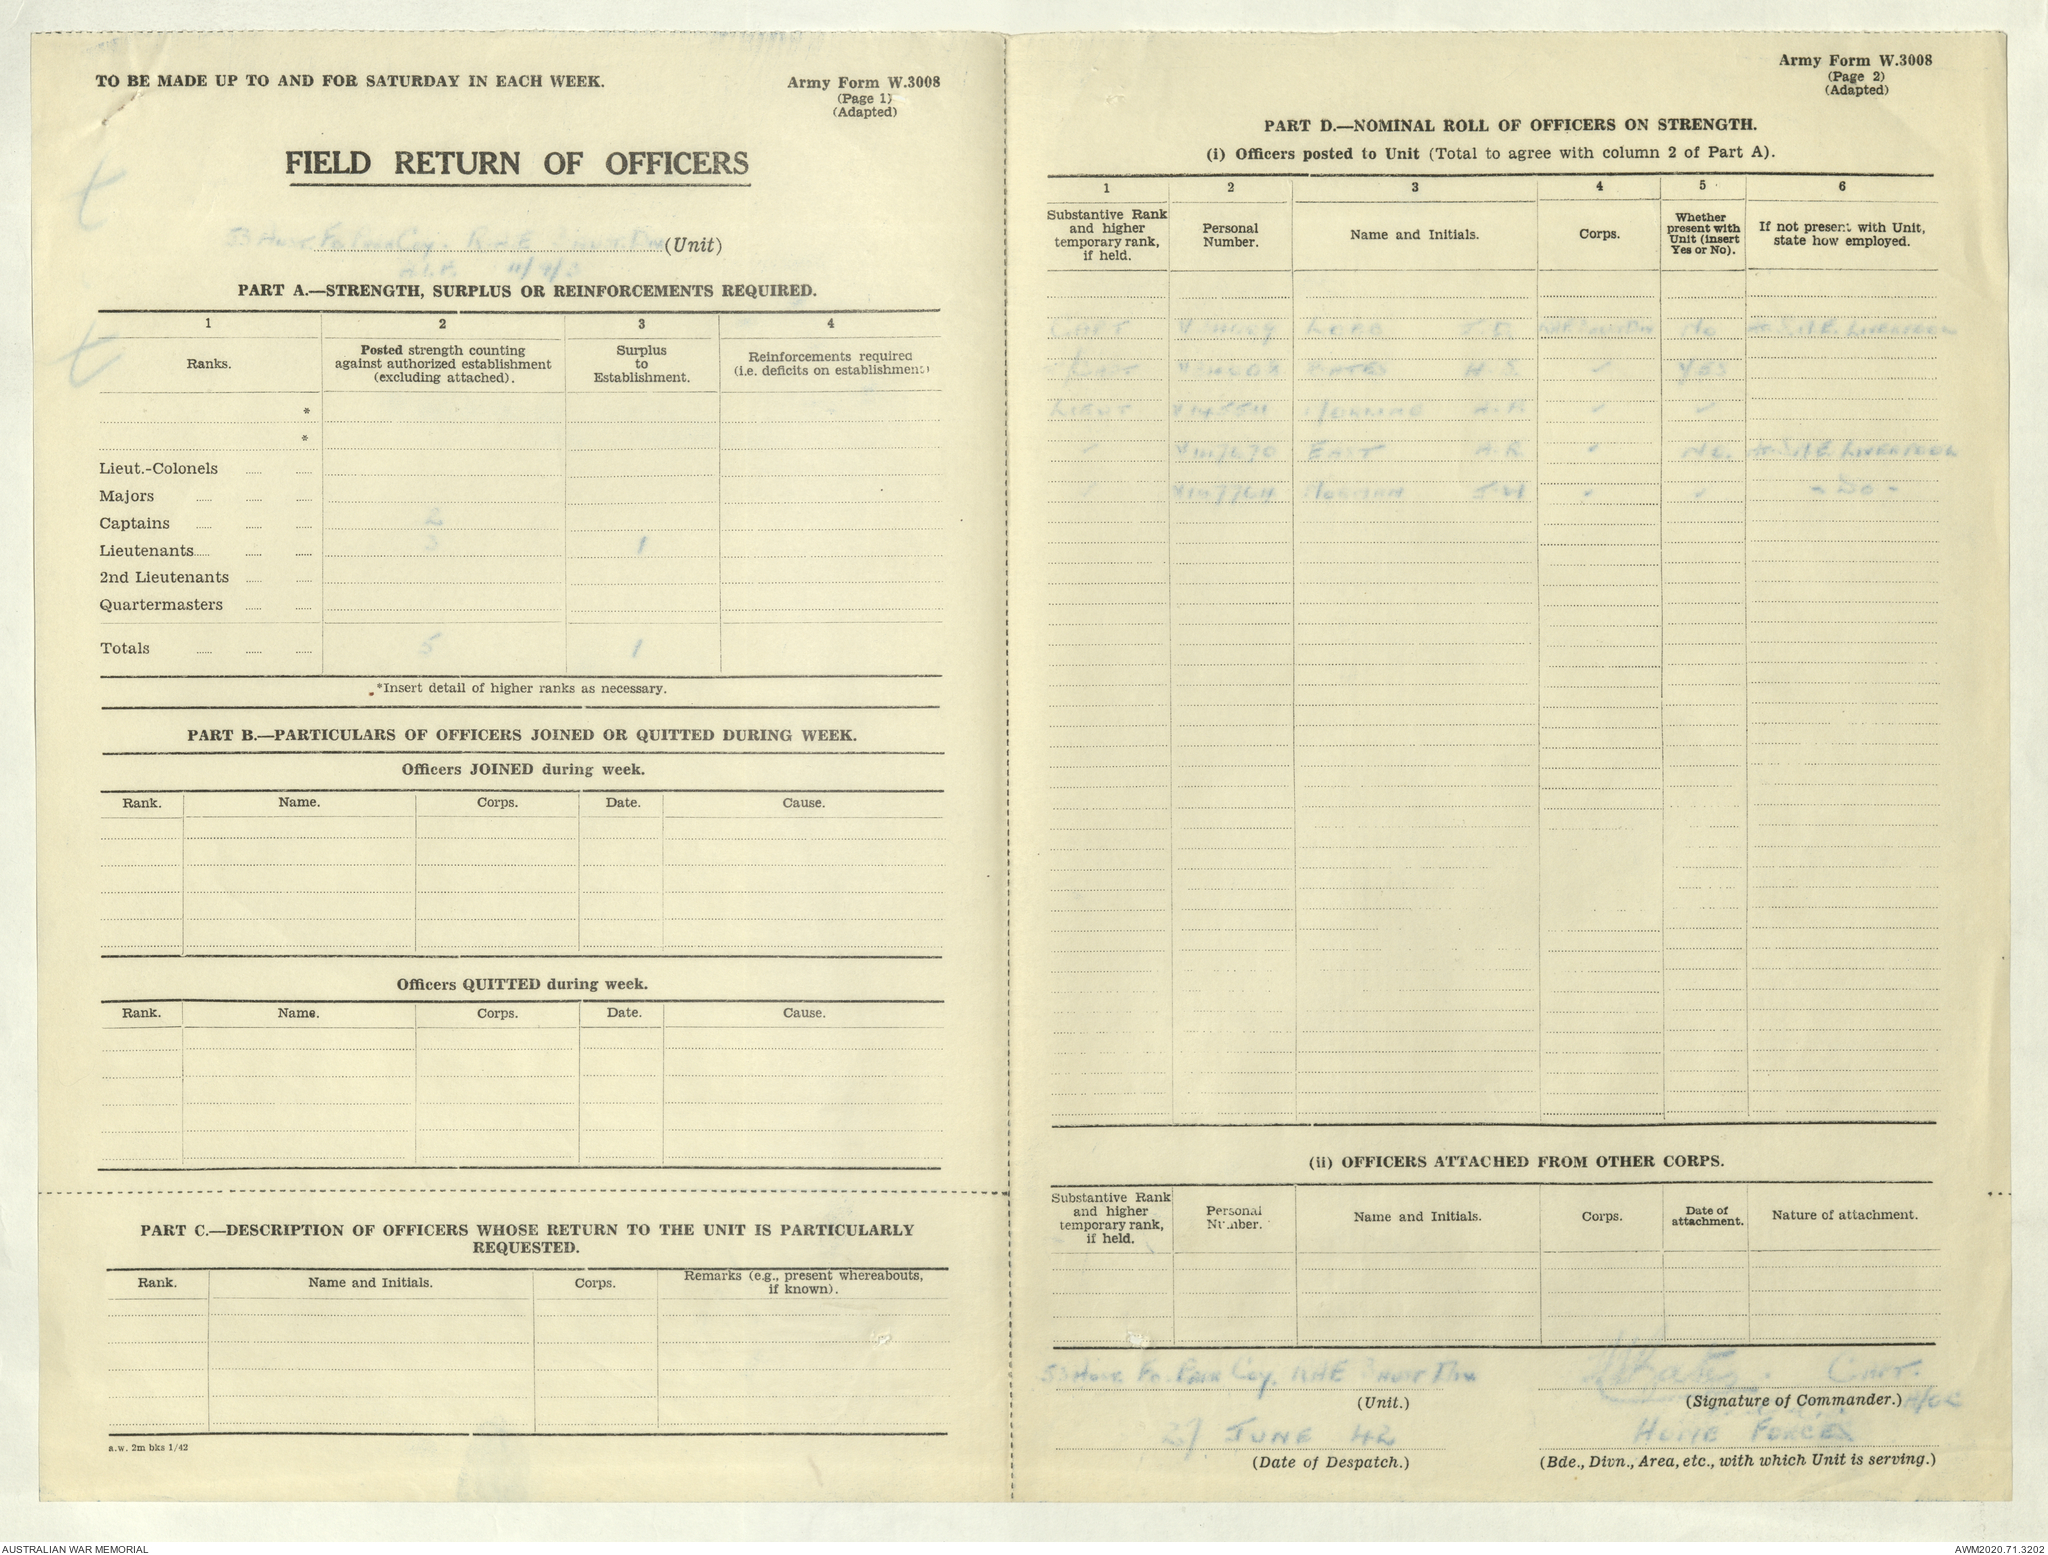 TO BE MADE UP TO AND FOR SATURDAY IN EACH WEEK.
Army Form W.3008
(Page 1)
(Adapted)
FIELD RETURN OF OFFICERS
t
Coy. RAE (Unit)
t
PART A.—STRENGTH, SURPLUS OR REINFORCEMENTS REQUIRED.
1 2 3 4
Ranks.
Posted strength counting
against authorized establishment
(excluding attached).
Surplus
to
Establishment.
Reinforcements required
(i.e. deficits on establishment)
*
*
Lieut.-Colonels
Majors
Captains 2
Lieutenants 3 1
2nd Lieutenants
Quartermasters
Totals 5 1
*Insert detail of higher ranks as necessary.
PART B.—PARTICULARS OF OFFICERS JOINED OR QUITTED DURING WEEK.
Officers JOINED during week.
Rank. Name. Corps. Date. Cause.
Officers QUITTED during week.
Rank. Name. Corps. Date. Cause.
PART C.—DESCRIPTION OF OFFICERS WHOSE RETURN TO THE UNIT IS PARTICULARLY
REQUESTED.
Rank. Name and Initials. Corps.
Remarks (e.g., present whereabouts,
if known).
a.w. 2m bks 1/42
Army Form W.3008
(Page 2)
(Adapted)
PART D.—NOMINAL ROLL OF OFFICERS ON STRENGTH.
(i) Officers posted to Unit (Total to agree with column 2 of Part A).
1 2 3 4 5 6
Substantive Rank
and higher
temporary rank,
if held.
Personal
Number.
Name and Initials.
Corps.
Whether
present with
Unit (insert
Yes or No).
If not present with Unit,
state how employed.
CAPT LORD No S.M.E. LIVERPOOL
BATES H.S. YES
LIEUT
EAST A.R. No. S.M.E. LIVERPOOL
NORMAN J.W. - Do -
(ii) OFFICERS ATTACHED FROM OTHER CORPS.
Substantive Rank
and higher
temporary rank,
if held.
Personal
Number.
Name and Initials.
Corps.
Date of
attachment.
Nature of attachment.
Coy. RAE
(Unit.)
27 JUNE 42
(Date of Despatch.)
Capt.
(Signature of Commander.)
HOME FORCES
(Bde., Divn., Area, etc., with which Unit is serving.)
AUSTRALIAN WAR MEMORIAL
AWM2020.71.3202